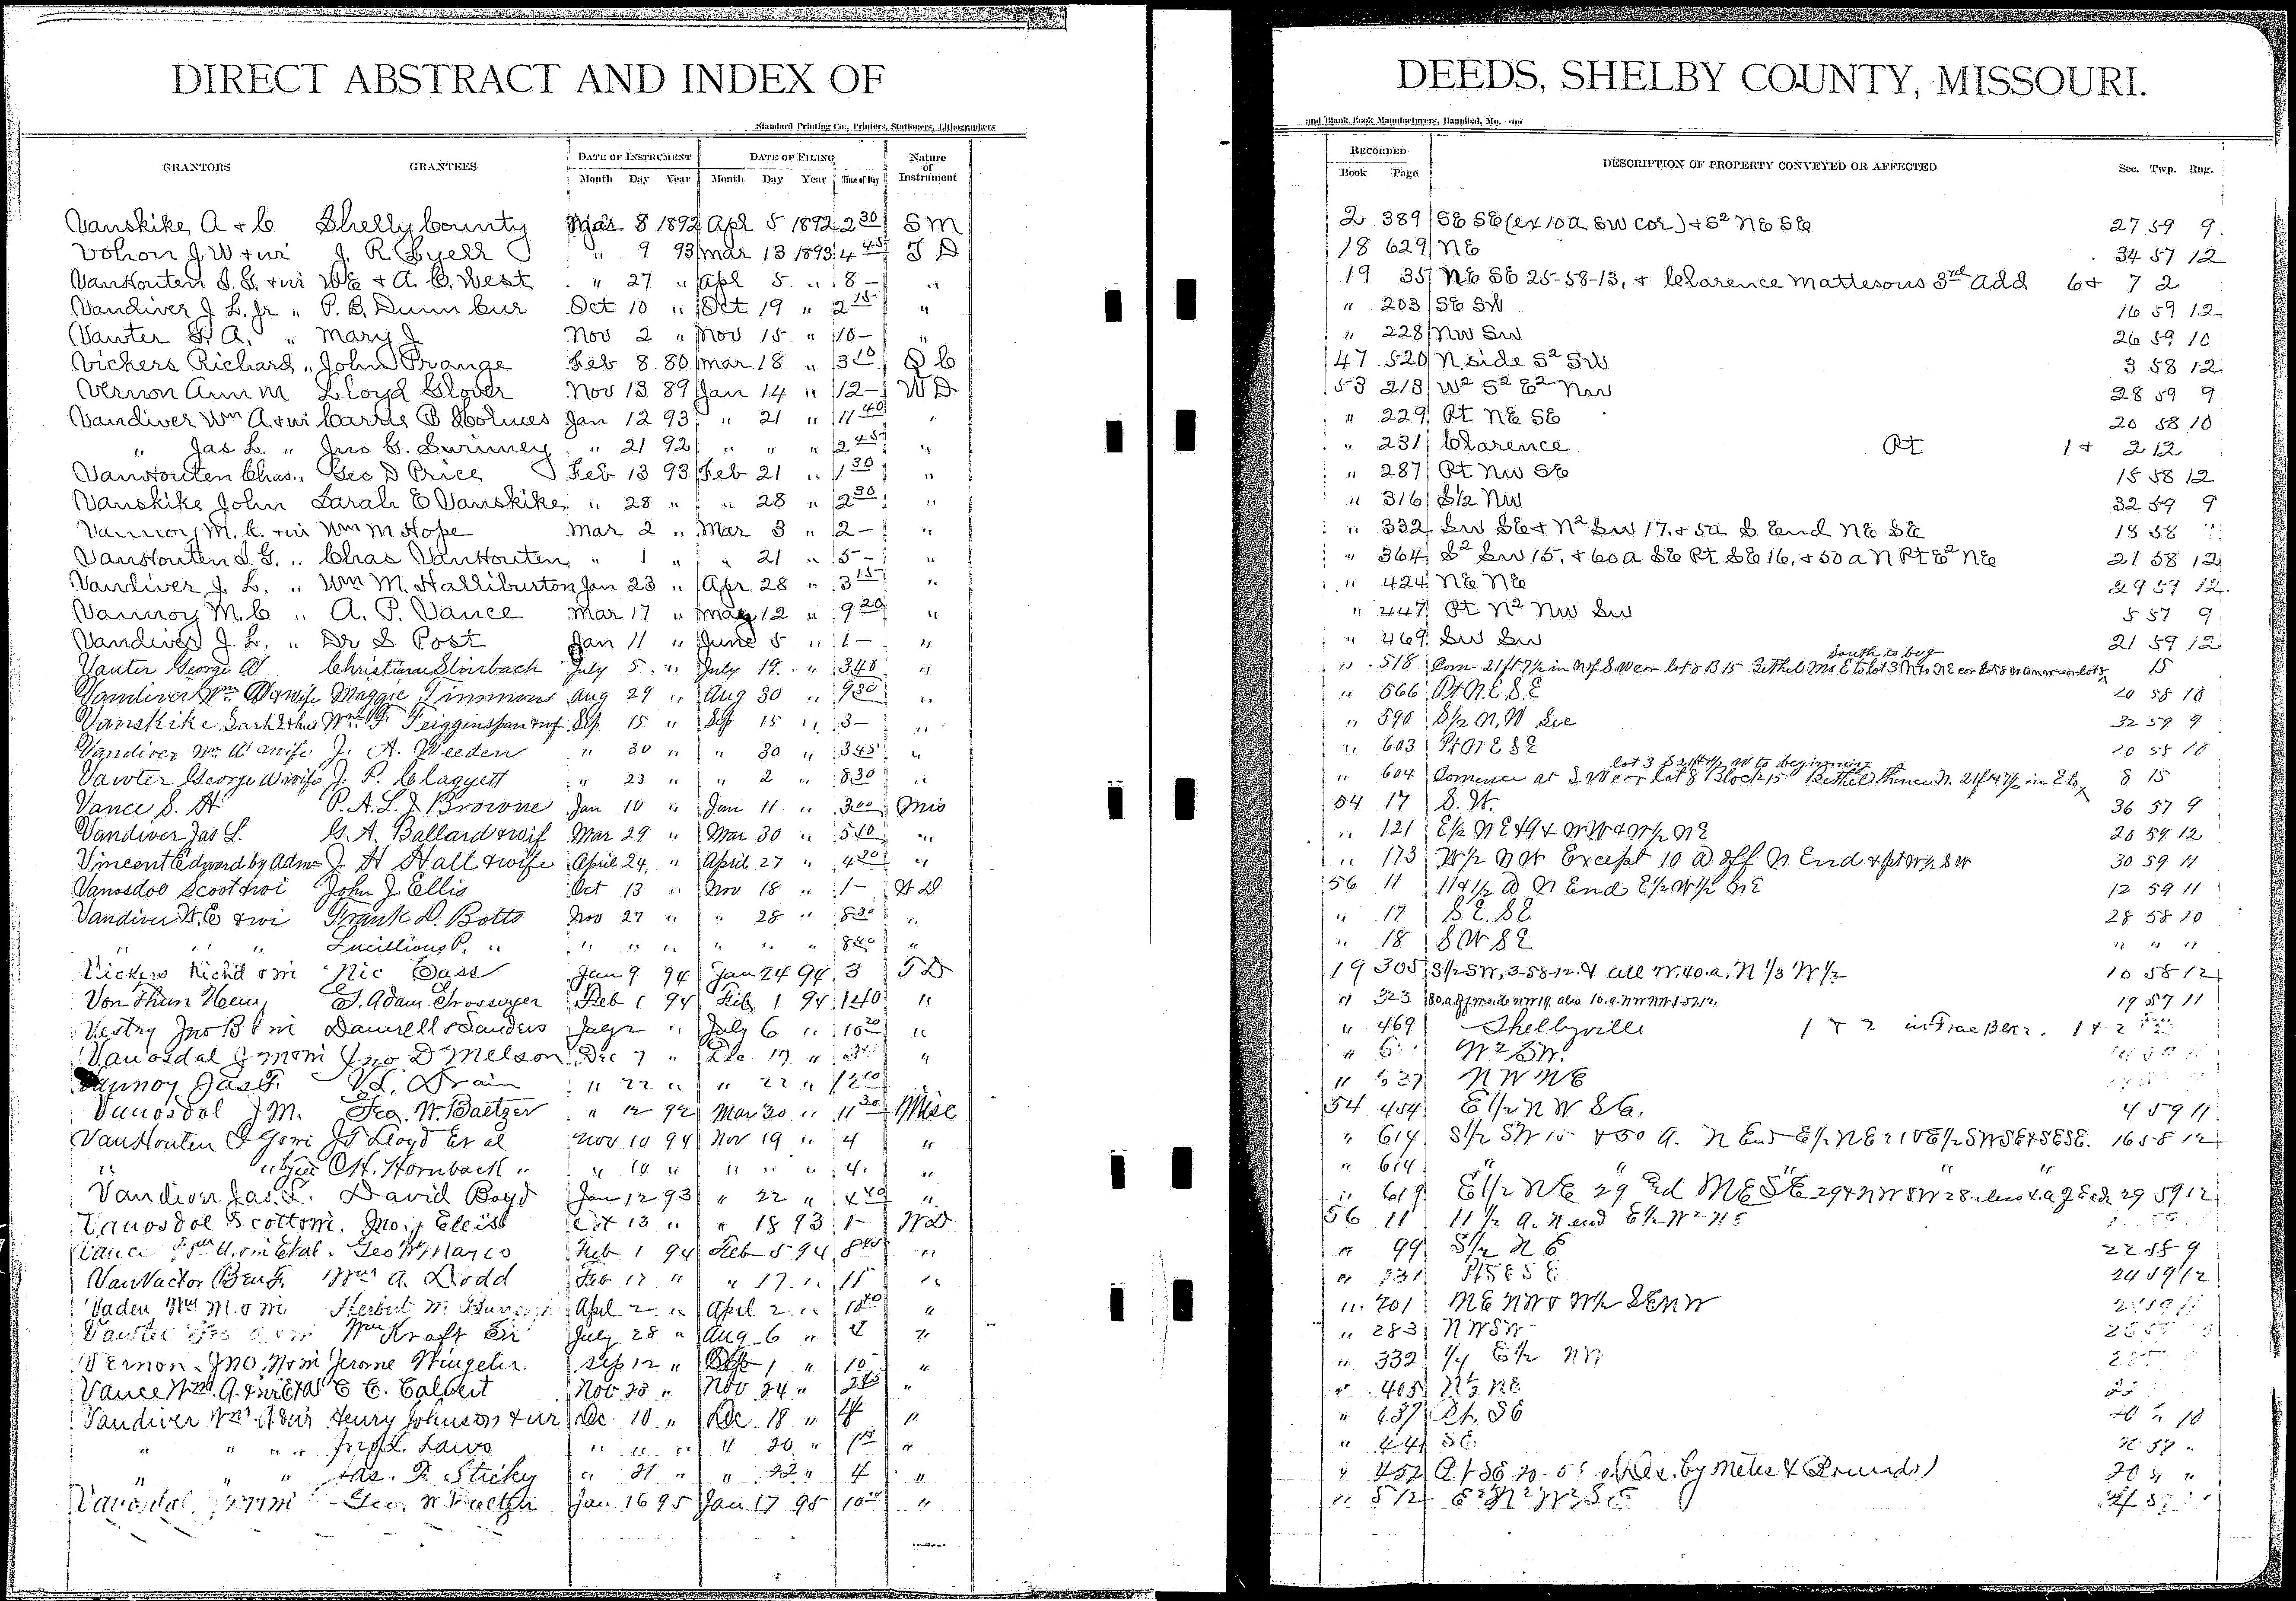 DIRECT ABSTRACT AND INDEX OF
Standard Printing Co., Printers, Stationers, Lithographers
GRANTORS GRANTEES DATE OF INSTRUMENT DATE OF FILING Nature of Instrument
Month Day Year Month Day Year Time of Day
Vanskike A & C Shelby County Mar 8 1892 Apr 5 1892 2 30 S M
Vohon J. W & wi J. R. Lyell " 9 93 Mar 13 1893 4 45 T D
VanHouten I. G. & wi W E & A. C. West " 27 " Apl 5 " 8 - "
Vandiver J L. Jr " P. B. Dunn Cur Oct 10 " Oct 19 " 2 15 "
Vawter G. A. " Mary J Nov 2 " Nov 15 " 10 - "
Vickers Richard " John Prange Feb 8 80 Mar 18 " 3 10 Q C
Vernon Ann M Lloyd Glover Nov 13 89 Jan 14 " 12 - W D
Vandiver Wm A. & wi Carrie B Holmes Jan 12 93 " 21 " 11 40 "
" Jas L. " Jno G. Swinney " 21 92 " " " 2 45 "
VanHouten Chas. " Geo D Price Feb 13 93 Feb 21 " 1 30 "
Vanskike John Sarah E Vanskike " 28 " " 28 " 2 30 "
Vannoy M. C. & wi Wm M Hope Mar 2 " Mar 3 " 2 - "
VanHouten I. G. " Chas VanHouten " 1 " " 21 " 5 - "
Vandiver J. L. " Wm M. Halliburton Jan 23 " Apr 28 " 3 15 "
Vannoy M. C " A. P. Vance Mar 17 " May 12 " 9 20 "
Vandiver J. L. " Dr S Post Jan 11 " June 5 " 1 - "
Vauter George A Christiana Steinbach July 5 " July 19 " 3 40 "
Vandiver Wm A & wife Maggie Timmons Aug 29 " Aug 30 " 9 30 "
Vanskike Sarh E & hus Wm F. Feigginspan & wf Sep 15 " Sep 15 " 3 - "
Vandiver Wm A & wife J. A. Weeden " 30 " " 30 " 3 45 "
Vawter George A & wife J. P. Claggett " 23 " " 2 " 8 30 "
Vance S. H P. A. L. J. Browne Jan 10 " Jan 11 " 3 00 Mis
Vandiver Jas L. G. A. Ballard & wif Mar 29 " Mar 30 " 5 10 "
Vincent Edward by Admr J. H Hall & wife April 24 " April 27 " 4 30 "
Vanosdol Scoot & wi John J. Ellis Oct 13 " Nov 18 " 1 - W D
Vandiver W. E & wi Frank D. Botts Nov 27 " " 28 " 8 30 "
" " " Lucillious P. " " " " " " " 8 40 "
Vickers Richd & wi Nic Gass Jan 9 94 Jan 24 94 3 T D
Von Thun Henry G. Adam Grossenger Feb 1 94 Feb 1 94 1 40 "
Vestry Jno B & wi Dannell & Sanders July 2 " July 6 " 10 20 "
Vanosdal J M & wi Jno D Melson Dec 7 " Dec 17 " "
Vannoy Jas F. V. L. Drain " 22 " " 22 " 12 10 "
Vanosdol J M. Geo. W. Baetzer " 12 92 Mar 30 " 11 30 Misc
VanHouten I G & wi J T Lloyd Et al Nov 10 94 Nov 19 " 4 "
" " C H. Hornback " " 10 " " " " 4. "
Vandiver Jas. L. David Boyd Jan 12 93 " 22 " 4 40 "
Vanosdol Scott & wi. Jno. J Ellis Oct 13 " " 18 93 1 - W D
Vance Wm A. & wi Et al. Geo W Marco Feb 1 94 Feb 5 94 8 "
VanVactor Benj F. Wm A. Dodd Feb 17 " " 17 " 11 "
Vaden Wm M. & wi Herbert M April 2 " April 2 " 10 40 "
Vawter Geo A & wi Wm Kraft Sr July 28 " Aug 6 " "
Vernon Jno. W & wi Jerome Wingeter Sep 12 " 1 " 10 "
Vance Wm. A. & wi Et al C C. Calvert Nov 20 " Nov 24 " "
Vandiver Wm A & wi Henry Johnson & ur Dec 10 " Dec 18 " "
" " " " L. Laws " " " " 20 " "
" " " Jas. R. Sticky " 21 " " 22 " 4 "
Vanosdal J M & wi Geo. W Baetzer Jan 16 95 Jan 17 95 10 "
DEEDS, SHELBY COUNTY, MISSOURI.
and Blank Book Manufacturers, Hannibal, Mo.
RECORDED DESCRIPTION OF PROPERTY CONVEYED OR AFFECTED Sec. Twp. Rng.
Book Page
2 389 SE SE (ex 10 a SW cor) & S2 NE SE 27 59 9
18 629 NE 34 57 12
19 35 NE SE 25-58-13, & Clarence Mattesons 3rd Add 6 & 7 2
" 203 SE SW 16 59 12
" 228 NW SW 26 59 10
47 520 N side S2 SW 3 58 12
53 218 W2 S2 E2 NW 28 59 9
" 229 Pt NE SE 20 58 10
" 231 Clarence Pt 1 & 2 12
" 287 Pt NW SE 15 58 12
" 316 S1/2 NW 32 59 9
" 332 SW SE & N2 SW 17, & 5a S End NE SE 18 58
" 364 S2 SW 15, & 60a SE Pt SE 16, & 50 a N Pt E2 NE 21 58 12
" 424 NE NE 29 59 12
" 447 Pt N2 NW SW 5 57 9
" 469 SW SW 21 59 12
South to beg
" 518 Com. 21 ft 7 1/2 in N of S W cor lot 8 B 15 Bethel Mo E to lot 3 N to N E cor lot 8 W to N W cor lot 8 15
" 566 Pt N E S E 20 58 10
" 590 S 1/2 N. W Sec 32 59 9
" 603 Pt N E S E 20 58 10
lot 3 S 21 ft 7 1/2 W to beginning
" 604 Comence at S. W cor lot 8 Block 15 Bethel thence N. 21 ft 7 1/2 in E to 8 15
54 17 S. W. 36 57 9
" 121 E 1/2 N E 29 & N W & W 1/2 N E 28 59 12
" 173 W 1/2 N W Except 10 a off N End & pt W 1/2 S W 30 59 11
56 11 11 & 1/2 a N End E 1/2 W 1/2 N E 12 59 11
" 17 S E. S E 28 58 10
" 18 S W S E " " "
19 305 S 1/2 SW, 3-58-12. & all W. 40. a, N 1/3 W 1/2 10 58 12
" 323 19 57 11
" 469 Shelbyville 1 & 2 in Frac Blk 2. 1 & 2
" W 2 S W.
" 637 N W N E
54 454 E 1/2 N W S E. 4 59 11
" 614 S 1/2 SW 15 & 50 a. N End E 1/2 N E 21 & E 1/2 SW SE & SE SE. 16 58 12
" 614 " " " " "
" 619 E 1/2 N E 29 NE SE 29 & N W S W 28 29 59 12
56 11 11 1/2 a. N end E 1/2 W 2 N E
" 99 S 1/2 N E 22 58 9
" 131 Pt S E S E 24 59 12
" 201 N E N W & W 1/2 S E N W
" 283 N W S W
" 332 1/4 E 1/2 N W
" 405 N E
" 437 Pt. S E 20 " 10
" 441 S E
" 452 Pt SE 20 by Metes & Bounds) 20 " "
" 512 E 2 N 2 W 2 S E